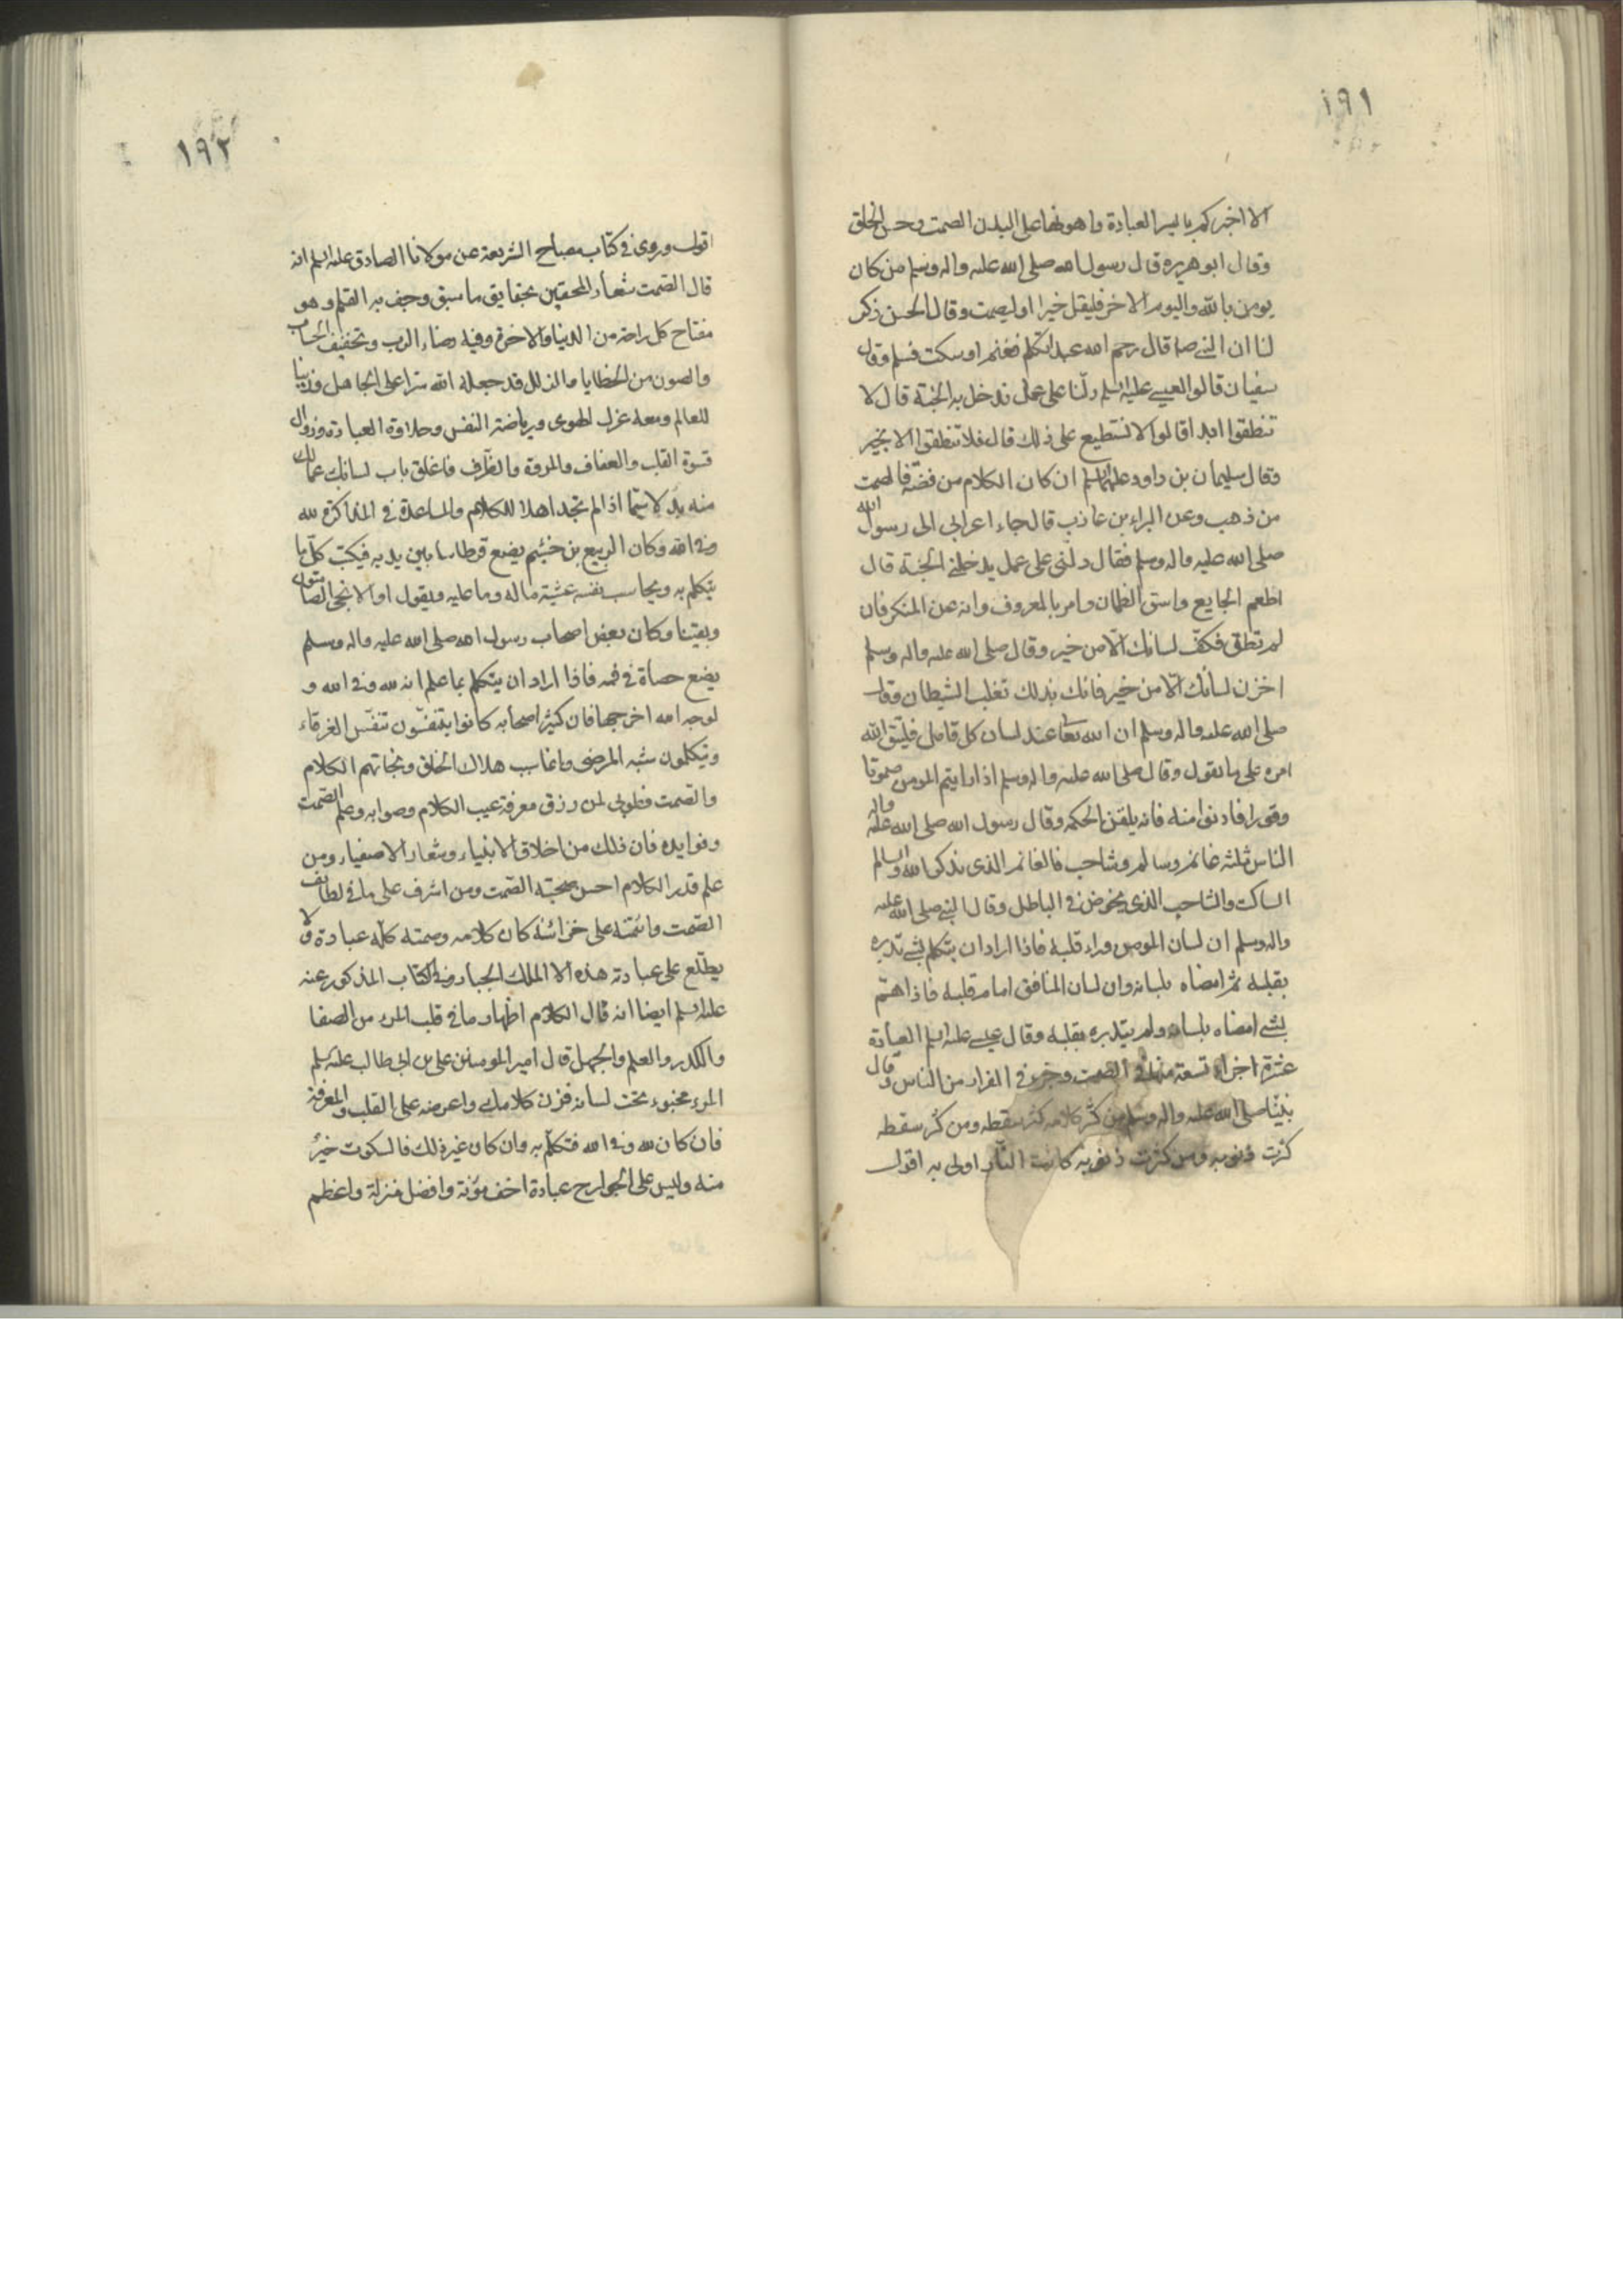 ١٩١
الا اخبركم بايسر العبادة واهونها على البدن الصمت وحسن الخلق
وقال ابو هريره قال رسول الله صلى الله عليه واله وسلم من كان
يومن بالله واليوم الاخر فليقل خيرا او ليصمت وقال الحسن ذكر
لنا ان النبي صلع قال رحم الله عبدا تكلم فغنم او سكت فسلم وقال
سفيان قالوا لعيسى عليه السلم دلنا على عمل ندخل به الجنة قال لا
تنطقوا ابدا قالوا لا نستطيع على ذلك قال فلا تنطقوا الا بخير
وقال سليمان بن داود عليهما السلم ان كان الكلام من فضة فالصمت
من ذهب وعن البراء بن عاذب قال جاء اعرابي الى رسول الله
صلى الله عليه واله وسلم فقال دلني على عمل يدخلني الجنة قال
اطعم الجايع واسق الظمان وامر بالمعروف وانه عن المنكر فان
لم تطق فكف لسانك الا من خير وقال صلى الله عليه واله وسلم
اخزن لسانك الا من خير فانك بذلك تغلب الشيطان وقال
صلى الله عليه واله وسلم ان الله تعا عند لسان كل قايل فليتق الله
امره على ما يقول وقال صلى الله عليه واله وسلم اذا رايتم المومن صموتا
وقورا فادنوا منه فانه يلقن الحكمة وقال رسول الله صلى الله عليه واله
الناس ثلثة غانم وسالم وشاحب فالغانم الذى يذكر الله والسالم
الساكت والشاحب الذى يخوض في الباطل وقال النبي صلى الله عليه
واله وسلم ان لسان المومن وراء قلبه فاذا اراد ان يتكلم بشي تدبره
بقلبه ثم امضاه بلسانه وان لسان المنافق امام قلبه فاذا هم
بشي امضاه بلسانه ولم يتدبره بقلبه وقال عيسى عليه السلم العبادة
عشرة اجزاء تسعة منها في الصمت وجزء في الفرار من الناس وقال
نبينا صلى الله عليه واله وسلم من كثر كلامه كثر سقطه ومن كثر سقطه
كثرت ذنوبه ومن كثرت ذنوبه كانت النار اولى به اقول
١٩٢
اقول وروى في كتاب مصباح الشريعة عن مولانا الصادق عليه السلم انه
قال الصمت شعار المحققين بحقايق ما سبق وجف به القلم وهو
مفتاح كل راحة من الدنيا والاخرة وفيه رضاء الرب وتخفيف الحساب
والصون من الخطايا والزلل قد جعله الله سترا على الجاهل وزينا
للعالم ومعه عزل الهوى ورياضة النفس وحلاوة العبادة وزوال
قسوة القلب والعفاف والمروة والظرف فاغلق باب لسانك عمالك
منه بد لا سيما اذا لم تجد اهلا للكلام والمساعدة في المذاكرة لله
وفي الله وكان الربيع بن خثيم يضع قرطاسا بين يديه فيكتب كل ما
يتكلم به ويحاسب نفسه عشيته ماله وما عليه ويقول اوه لا نجى الصامتون
وبقينا وكان بعض اصحاب رسول الله صلى الله عليه واله وسلم
يضع حصاة في فمه فاذا اراد ان يتكلم بما علم انه لله وفي الله و
لوجه الله اخرجها فان كثيرا اصحابه كانوا يتنفسون تنفس الغرقاء
ويتكلمون شبه المرضى وانما سبب هلاك الخلق ونجاتهم الكلام
والصمت فطوبى لمن رزق معرفة عيب الكلام وصوابه وعلم الصمت
وفوايده فان ذلك من اخلاق الانبياء وشعار الاصفياء ومن
علم قدر الكلام احسن صحبته الصمت ومن اشرف على ما في لطائف
الصمت وائتمنه على خزائنه كان كلامه وصمته كله عبادة ولا
يطلع على عبادته هذه الا الملك الجبار وفي الكتاب المذكور عنه
عليه السلم ايضا انه قال الكلام اظهار ما في قلب المرء من الصفا
والكدر والعلم والجهل قال امير المومنين على بن ابى طالب عليه السلم
المرء مخبوء تحت لسانه فزن كلامك واعرضه على القلب والمعرفة
فان كان لله وفي الله فتكلم به وان كان غير ذلك فالسكوت خير
منه وليس على الجوارح عبادة اخف مؤنة وافضل منزلة واعظم